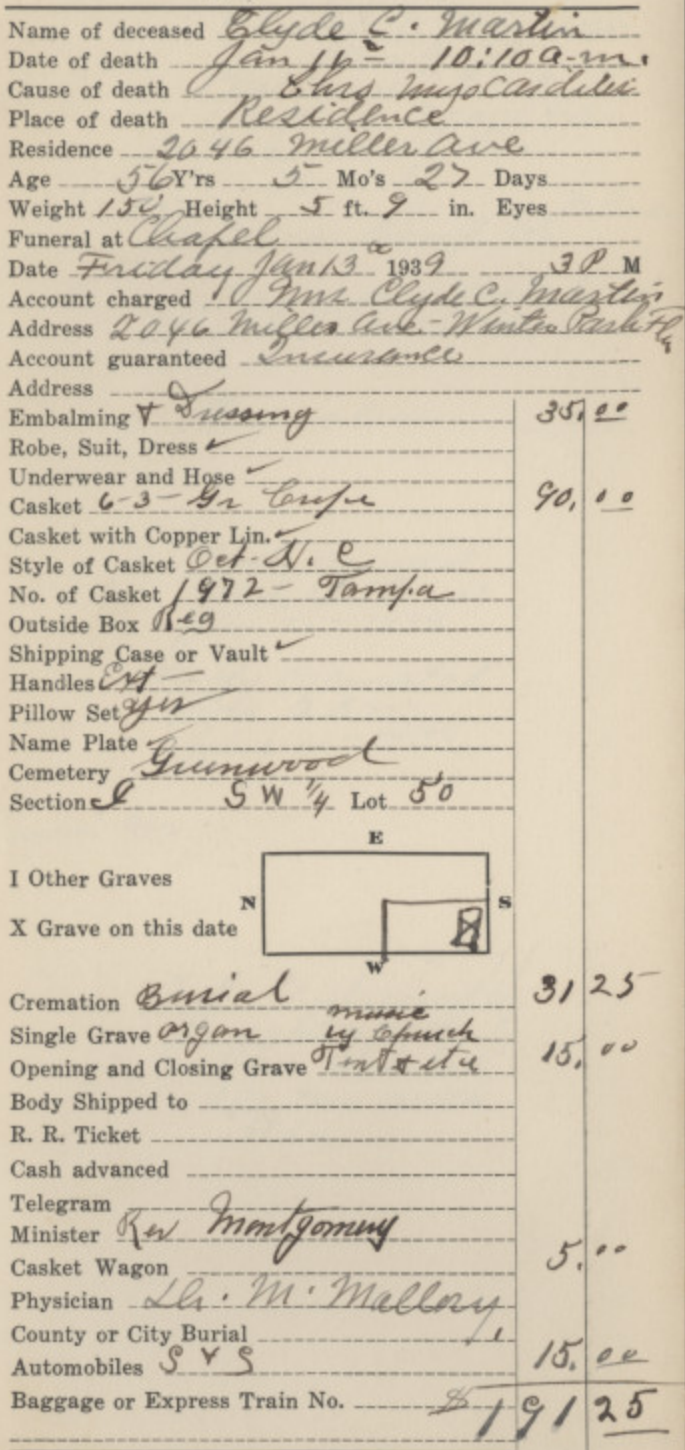 Name of deceased Clyde C. Martin
Date of death Jan 11th 10:10 a-m.
Cause of death Chro Myocarditis
Place of death Residence
Residence 2046 Miller Ave
Age 56 Y'rs 5 Mo's 27 Days
Weight 150 Height 5 ft. 9 in. Eyes
Funeral at Chapel
Date Friday Jan 13 1939 3 P M
Account charged Mrs Clyde C. Martin
Address 2046 Miller Ave - Winter Park Fla
Account guaranteed Insurance
Address
Embalming & Dressing 35.00
Robe, Suit, Dress ✓
Underwear and Hose ✓
Casket 6-3- Gr Crepe 90.00
Casket with Copper Lin. ✓
Style of Casket Oct- N. C
No. of Casket 1972 - Tampa
Outside Box Reg
Shipping Case or Vault ✓
Handles Ext
Pillow Set yes
Name Plate ✓
Cemetery Greenwood
Section I SW 1/4 Lot 50
E
I Other Graves
N S
X Grave on this date
W
Cremation Burial 31 25
music
Single Grave organ by Church
Opening and Closing Grave Tent & etc 15.00
Body Shipped to
R. R. Ticket
Cash advanced
Telegram
Minister Rev Montgomery
Casket Wagon 5.00
Physician Dr. M. Mallory
County or City Burial
Automobiles S & S 15.00
Baggage or Express Train No. $191 25